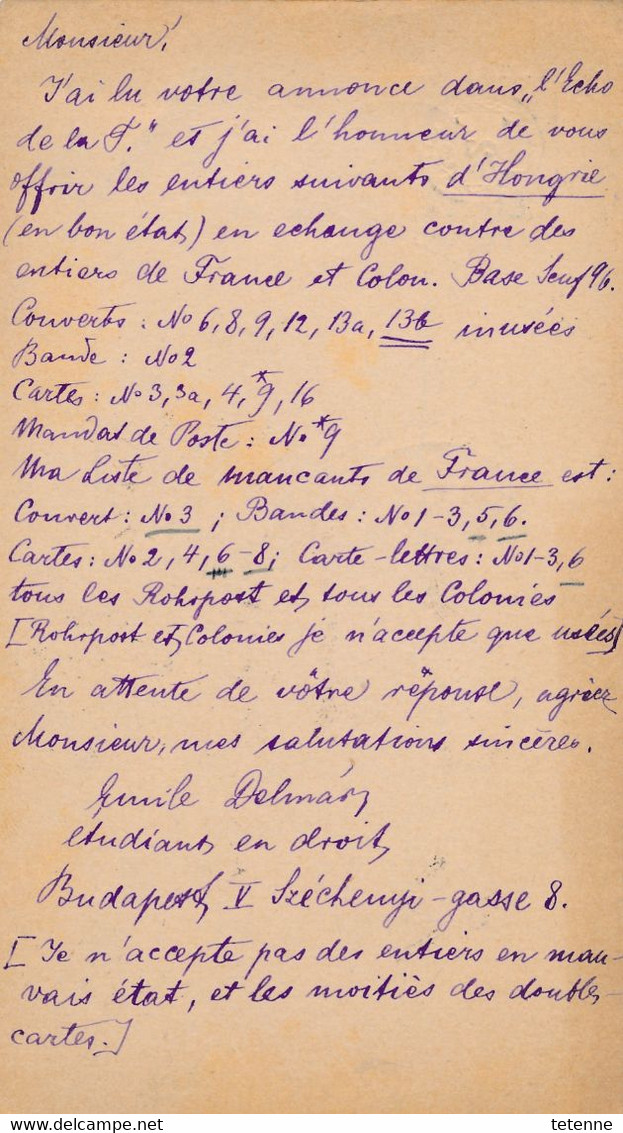 Monsieur!
J'ai lu votre annonce dans „l'Echo
de la T." et j'ai l'honneur de vous
offrir les entiers suivants d'Hongrie
(en bon état) en echange contre des
entiers de France et Colon. Base Senf 96.
Converts: No 6, 8, 9, 12, 13a, 13b inusées
Bande: No 2
Cartes: No 3, 3a, 4, *9, 16
Mandat de Poste: No *9
Ma Liste de mancants de France est:
Convert: No 3; Bandes: No 1-3, 5, 6.
Cartes: No 2, 4, 6-8; Carte-lettres: No 1-3, 6
tous les Rohrpost et tous les Colonies
[Rohrpost et Colonies je n'accepte que usées]
En attente de vôtre réponse, agréez
Monsieur, mes salutations sincères.
Emile Delmár
étudiant en droit
Budapest V Széchenyi-gasse 8.
[Je n'accepte pas des entiers en mau-
vais état, et les moitiès des doubles-
cartes.]
https://www.delcampe.net
tetenne